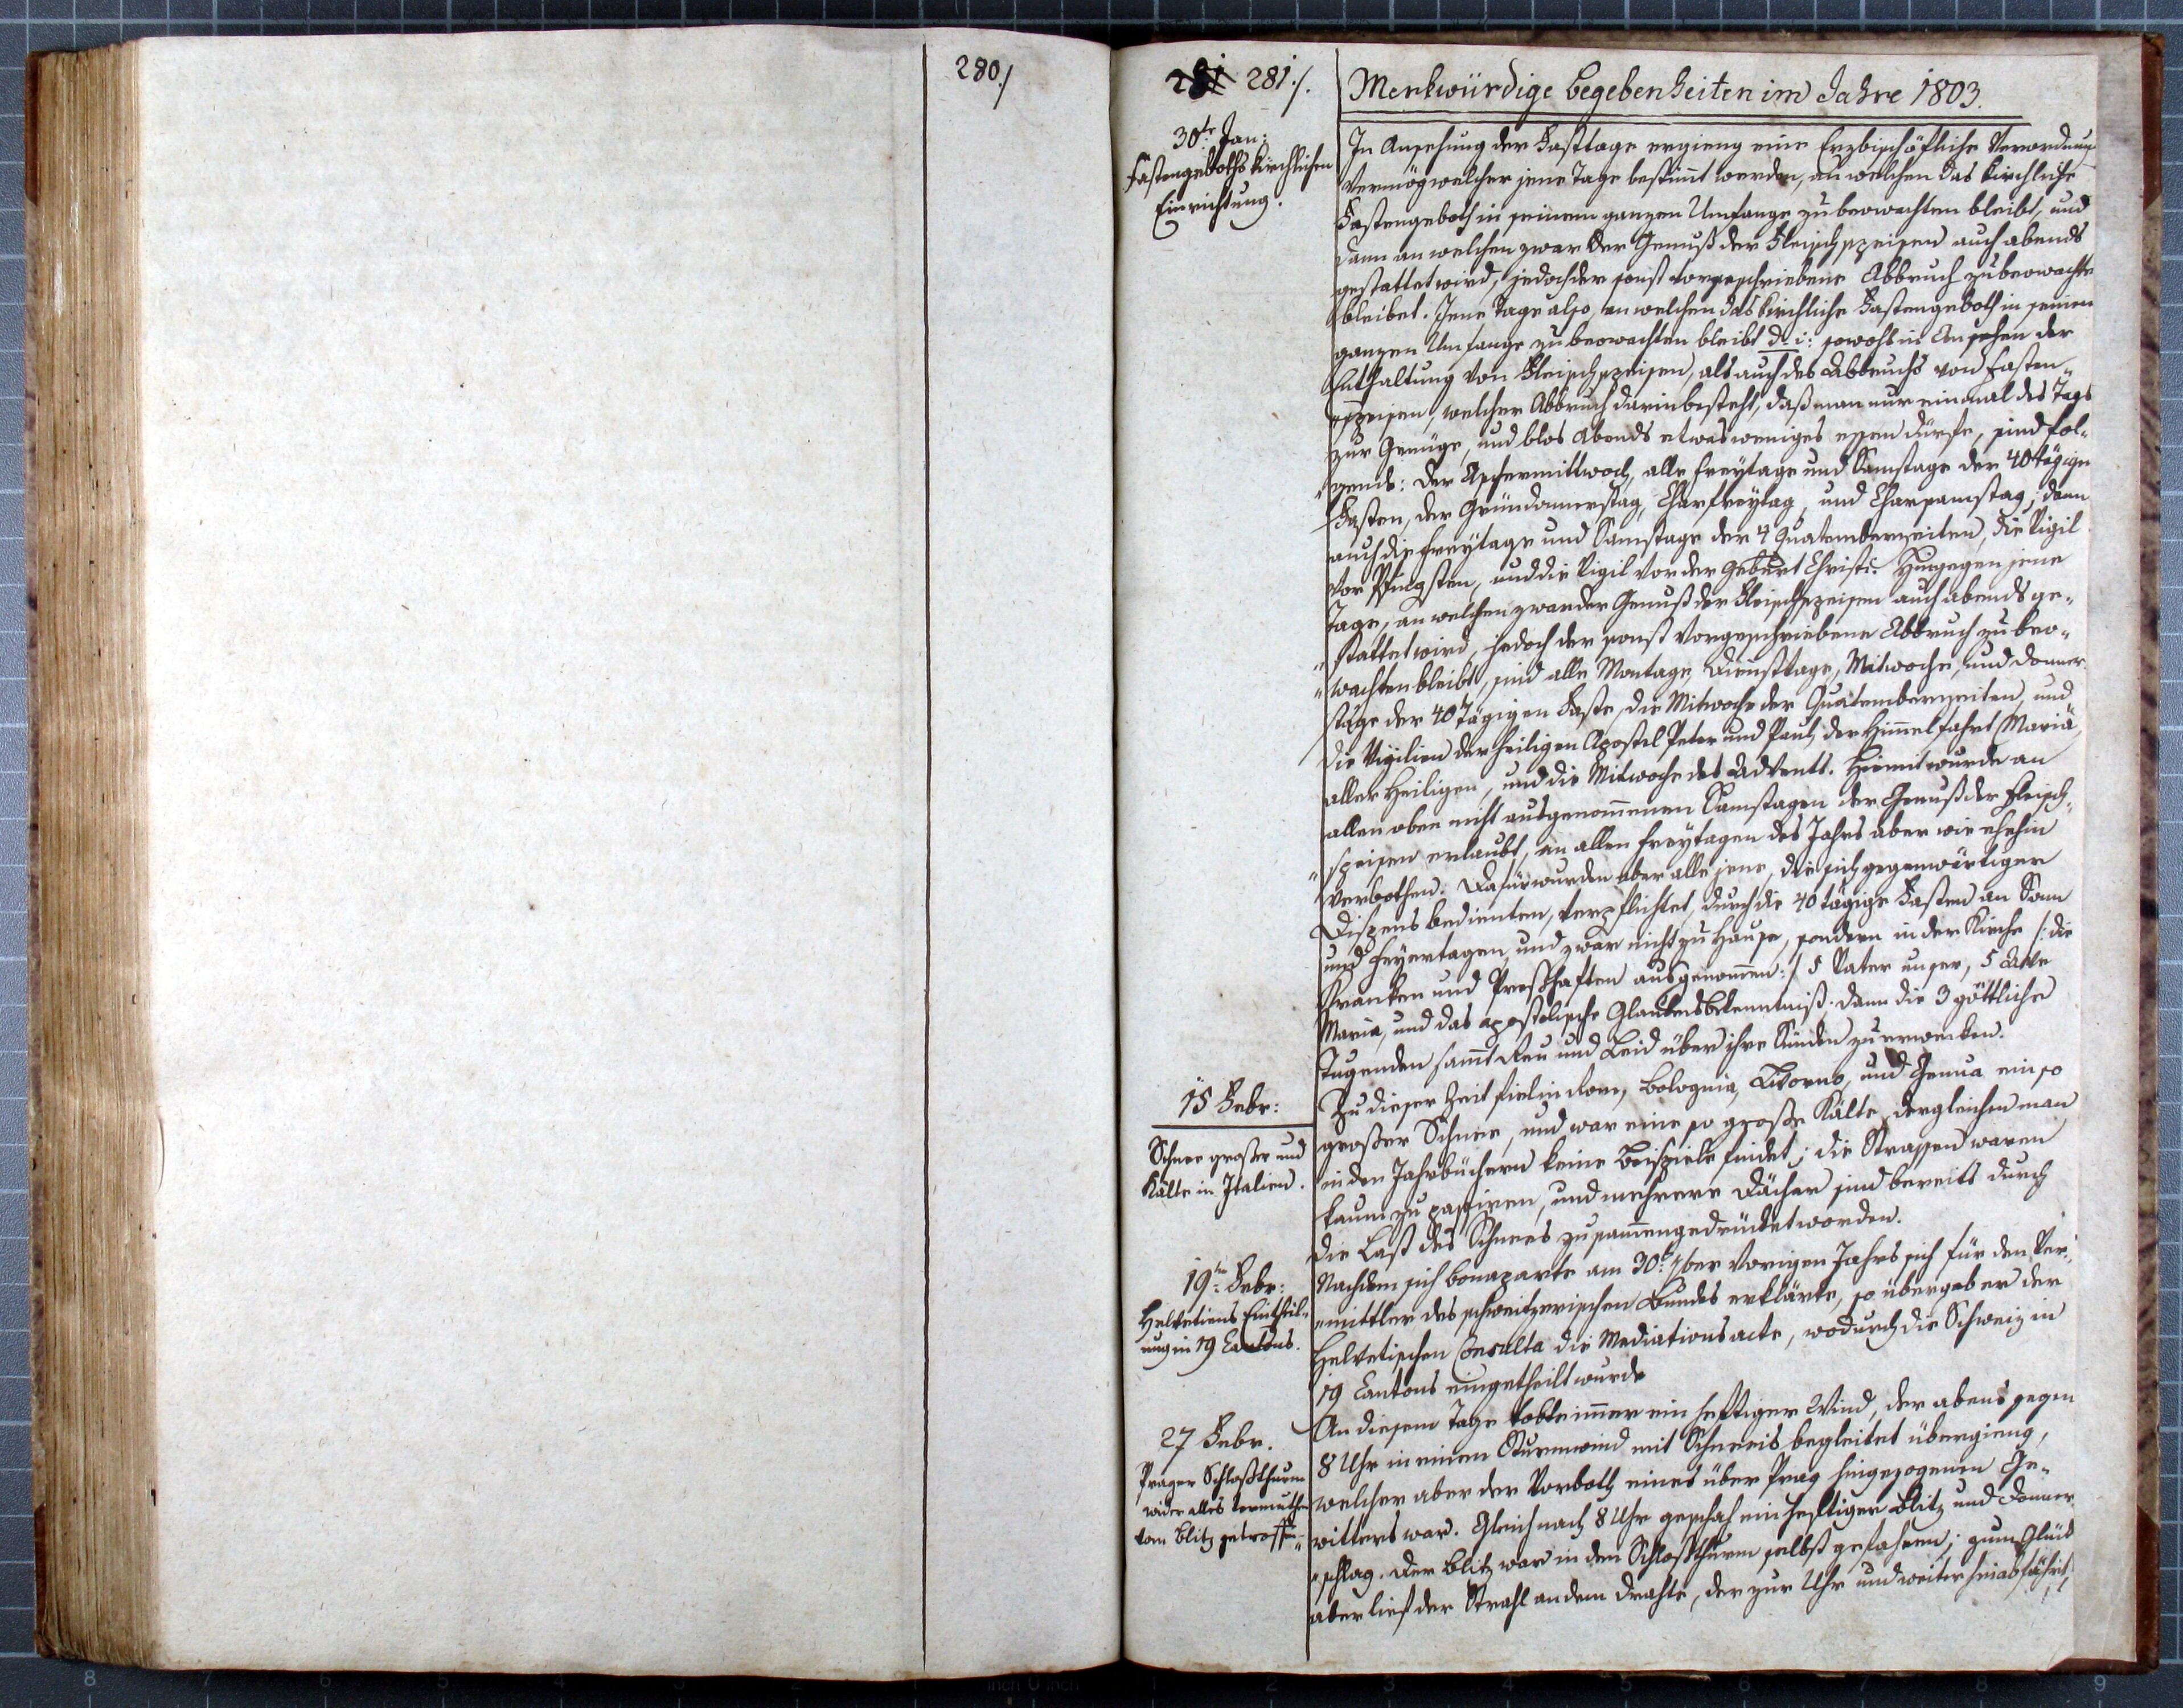 280./
281 281./.
Merkwürdige Begebenheiten im Jahre 1803.
30te Jan:
Fastengeboths kirchlichen
Einrichtung.
In Ansehung der Fasttage ergieng eine Erzbischöfliche Verordnung
Vermög welcher jene Tage bestimt werden, an welchen das kirchliche
Fastengeboth in seinem ganzen Umfange zu beowachten bleibt, und
dann an welchen zwar der Genuß der Fleischspeisen auch abends
gestattet wird, jedoch der sonst vorgeschriebene Abbruch zu beowachten
bleibet. Jene Tage also, an welchen das kirchliche Fastengeboth in seinen
ganzen Umfange zu beowachten bleibt d. i: sowohl in Ansehen der
Enthaltung von Fleischspeisen, als auch des Abbruchs von Fasten„
„speisen, welcher Abbruch darin besteht, daß man nur einmal des Tags
zur Genüge, und blos Abends etwas weniges essen dürfe, sind fol„
gende: der Aschermittwoch, alle Freytage und Samstage der 40tägigen
Fasten, der Gründonnerstag, Charfreytag, und Charsamstag; dann
auch die Freytage und Samstage der 4 Quatemberzeiten, die Vigil
vor Pfingsten, und die Vigil vor der Geburt Christi. Hingegen jene
Tage, an welchen zwar der Genuß der Fleischspeisen auch abends ge„
„stattet wird, jedoch der sonst vorgeschriebene Abbruch zu beo„
„wachten bleibt, sind alle Montage, Dienstage, Mitwoche, und Donner
stage der 40 tägigen Faste, die Mitwoche der Quatemberzeiten, und
die Vigilien der heiligen Apostel Peter und Paul, der Himmelfahrt Mariä,
aller Heiligen, und die Mitwoche des Advents. Hiemit wurde an
allen oben nicht ausgenommenen Samstagen der Genuß der Fleisch„
„speisen erlaubt, an allen Freytagen des Jahrs aber wie ehehin
verbothen. Dafür wurden aber alle jene, die sich gegenwärtiger
Dispens bedienten, verpflichtet, durch die 40 tägige Fasten an Sonn
und Feyertagen, und zwar nicht zu Hause, sondern in der Kirche /: die
Kranken und Presthaften ausgenommen :/ 5 Vater unser, 5 Ave
Maria, und das apostolische Glaubensbekenntniß, dann die 3 göttliche
Tugenden sammt Reu und Leid über ihre Sünden zu erwecken.
15 Febr:
Schnee großer und
Kälte in Italien.
Zu dieser Zeit fiel in Rom, Bolognia, Livorno, und Genua ein so
großer Schnee, und war eine so große Kälte, dergleichen man
in den Jahrbüchern keine Beispiele findet; die Strassen waren
kaum zu passiren, und mehrere Dächer sind bereits durch
die Last des Schnees zusammengedrücket worden.
19te Febr:
Helvetiens Eintheil„
ung in 19 Cantons.
Nachdem sich Bonaparte am 30t 7ber vorigen Jahrs sich für den Ver„
„mittler des schweitzerischen Bundes erklärte, so übergab er der
Helvetischen Consulta die Mediationsacte, wodurch die Schweiz in
19 Cantons eingetheilt wurde
27 Febr.
Prager Schloßthurm
wider alles vermuthen
vom Blitz getroffen.„
An diesem Tage tobte immer ein heftiger Wind, der abens gegen
8 Uhr in einen Sturmwind mit Schneeis begleitet übergieng,
welcher aber der Vorboth eines über Prag hingezogenen Ge„
witters war. Gleich nach 8 Uhr geschah ein heftiger Blitz und Donner
„schlag. Der Blitz war in den Schloßthurm selbst gefahren; zum Glück
aber lief der Strahl an dem Drahte, der zur Uhr und weiter hinabfährt,